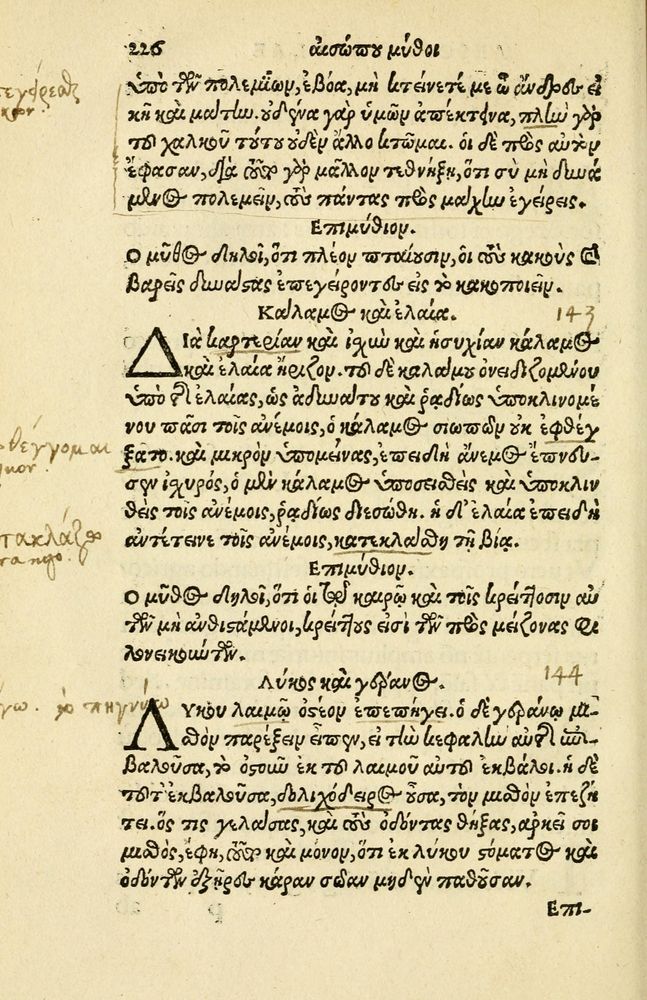 226 αισώπου μύθοι
ὑπὸ τῶν πολεμίων, ἐβόα, μὴ κτείνετέ με ὦ ἄνδρες εἰ
κῆ καὶ μάτην. οὐδένα γὰρ ὑμῶν ἀπέκτεινα, πλὴν γὰρ
τοῦ χαλκοῦ τούτου οὐδὲν ἄλλο κτῶμαι. οἱ δὲ πρὸς αὐτὴν
ἔφασαν, διὰ τοῦτο γὰρ μᾶλλον τεθνήξῃ, ὅτι σὺ μὴ δυνά
μενος πολεμεῖν, τοὺς πάντας πρὸς μάχην ἐγείρεις.
Επιμύθιον.
Ο μῦθος δηλοῖ, ὅτι πλέον πταίουσιν, οἱ τοὺς κακοὺς καὶ
βαρεῖς δυνάστας ἐπεγείροντες εἰς τὸ κακοποιεῖν.
Κάλαμος καὶ ἐλαία. 143
ΔΙὰ καρτερίαν καὶ ἰχὺν καὶ ἡσυχίαν κάλαμος
καὶ ἐλαία ἤριζον. τοῦ δὲ καλάμου ὀνειδιζομένου
ὑπὸ τῆς ἐλαίας, ὡς ἀδυνάτου καὶ ῥᾳδίως ὑποκλινομέ
νου πᾶσι τοῖς ἀνέμοις, ὁ κάλαμος σιωπῶν οὐκ ἐφθέγ
ξατο. καὶ μικρὸν ὑπομείνας, ἐπειδὴ ἄνεμος ἔπνευ-
σεν ἰχυρός, ὁ μὲν κάλαμος ὑποσειθεὶς καὶ ὑποκλιν
θεὶς τοῖς ἀνέμοις, ῥᾳδίως διεσώθη. ἡ δ' ἐλαία ἐπειδὴ
ἀντέτεινε τοῖς ἀνέμοις, κατεκλάσθη τῇ βίᾳ.
Επιμύθιον.
Ο μῦθος δηλοῖ, ὅτι οἱ τῷ καιρῷ καὶ τοῖς κρείττοσιν αὐ
τῶν μὴ ἀνθιστάμενοι, κρείττους εἰσὶ τῶν πρὸς μείζονας φι
λονεικούντων.
Λύκος καὶ γέρανος. 144
ΛΥκου λαιμῷ ὀστέον ἐπεπήγει. ὁ δὲ γεράνῳ μι-
σθὸν παρέξειν εἶπεν, εἰ τὴν κεφαλὴν αὐτῆς ἐπι-
βαλοῦσα, τὸ ὀστοῦν ἐκ τοῦ λαιμοῦ αὐτοῦ ἐκβάλοι. ἡ δὲ
τοῦτ' ἐκβαλοῦσα, δολιχόδειρος οὖσα, τὸν μισθὸν ἐπεζή
τει. ὅς τις γελάσας, καὶ τοὺς ὀδόντας θήξας, ἀρκεῖ σοι
μισθὸς, ἔφη, τοῦτο καὶ μόνον, ὅτι ἐκ λύκου στόματος καὶ
ὀδόντων ἐξῆρες κάραν σώαν μηδὲν παθοῦσαν.
Επι-